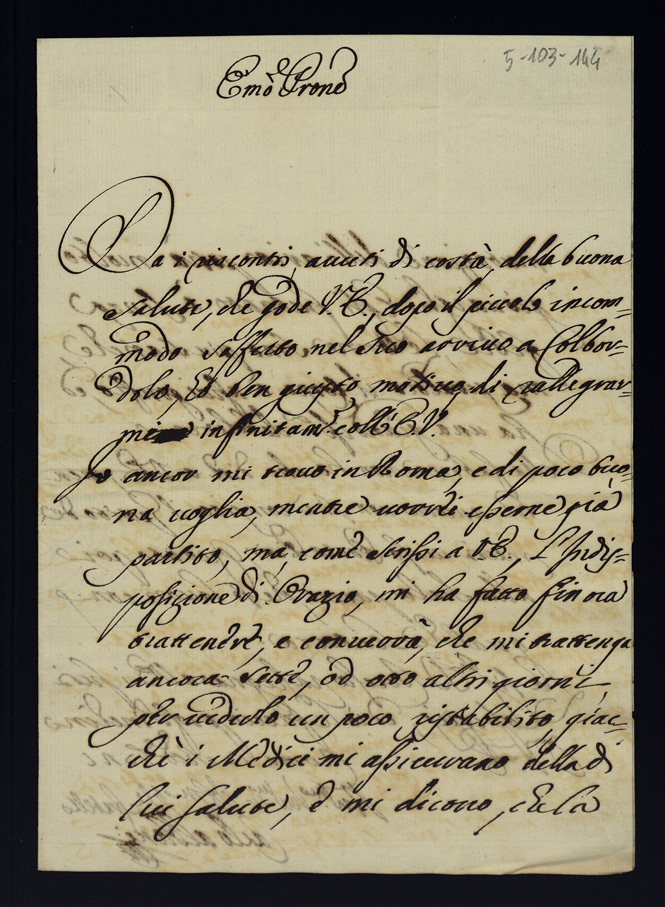 5-103-144
Emo Prone
Da i riscontri, avuti di costà, della buona
salute, che gode V. E., dopo il piccolo incom-
modo sofferto nel suo arrivo a Colbor-
dolo, ed ben giusto motivo di rallegrar-
mi infinitam. coll' E. V.
Io ancor mi trovo in Roma, e di poco buo-
na voglia, mentre vorrei esserne già
partito, ma, come scrissi a V. E., l'Indis-
posizione di Orazio, mi ha fatto finora
trattenere, e converrà, che mi trattenga
ancora sette, od otto altri giorni
per vederlo un poco ristabilito, giac-
chè i Medici mi assicurano della di
lui salute, e mi dicono, che la